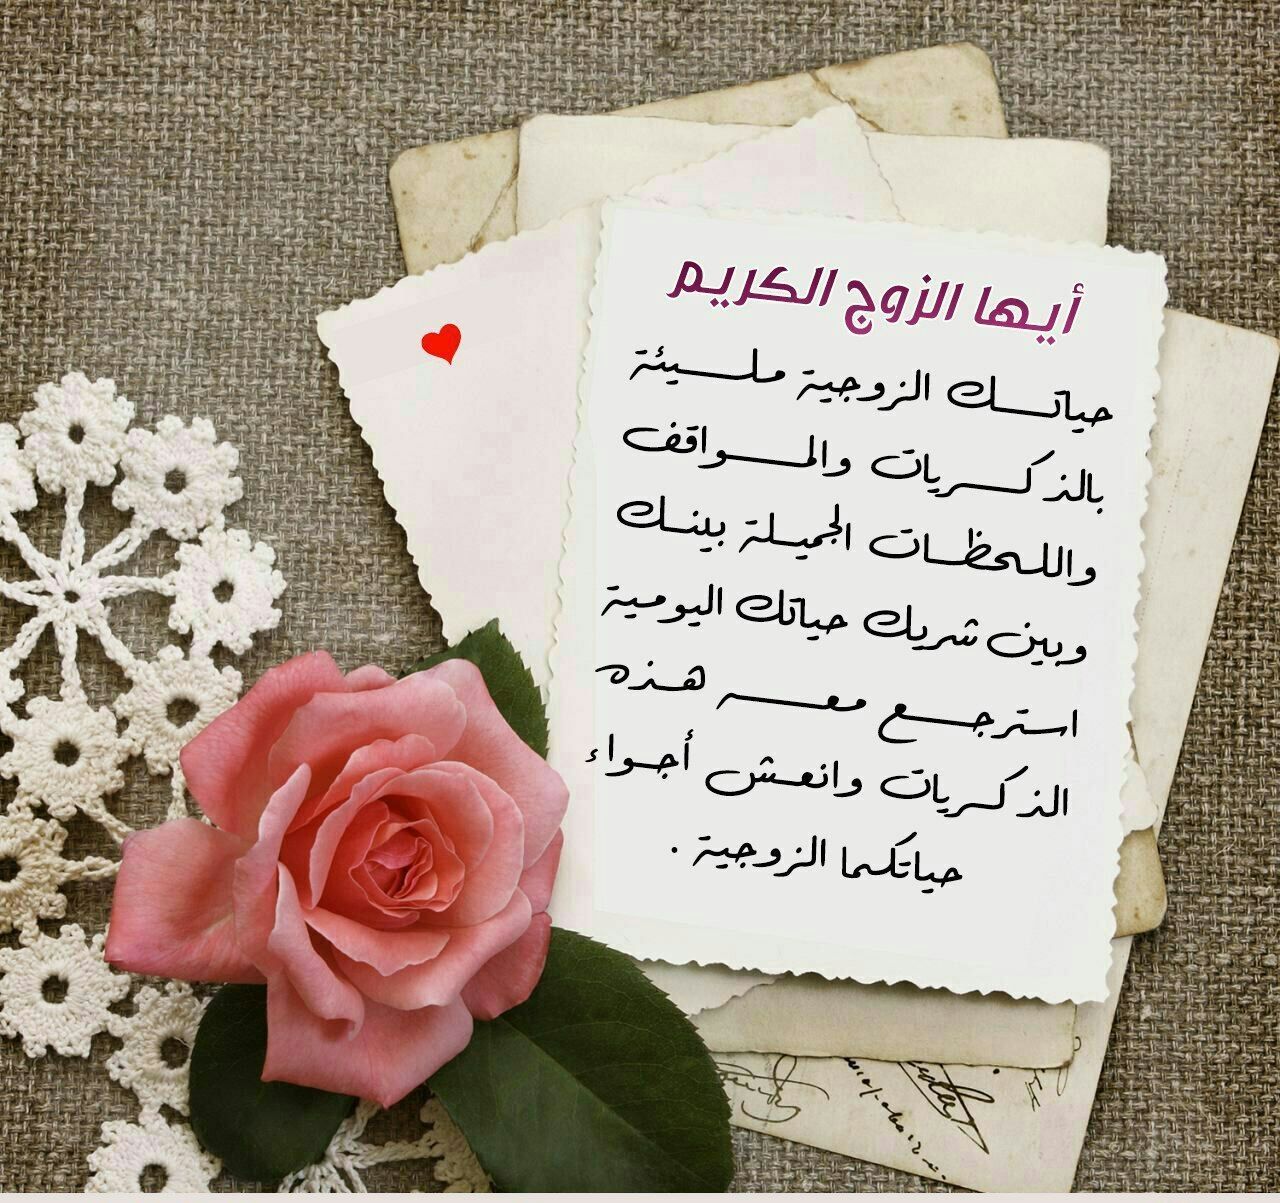 أيها الزوج الكريم
حياتك الزوجية مليئة
بالذكريات والمواقف
واللحظات الجميلة بينك
وبين شريك حياتك اليومية
استرجع معه هذه
الذكريات وانعش أجواء
حياتكما الزوجية .